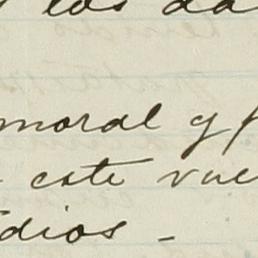 los da
moral y f
este vue
dios -